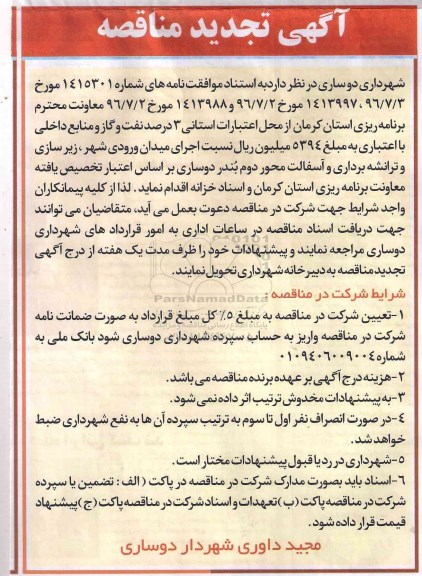 آگهی تجدید مناقصه
شهرداری دوساری در نظر دارد به استناد موافقت نامه های شماره ۱۴۱۵۳۰۱ مورخ
۹۶/۷/۳ ، ۱۴۱۳۹۹۷ مورخ ۹۶/۷/۲ و ۱۴۱۳۹۸۸ مورخ ۹۶/۷/۲ معاونت محترم
برنامه ریزی استان کرمان از محل اعتبارات استانی ۳ درصد نفت و گاز و منابع داخلی
با اعتباری به مبلغ ۵۳۹۴ میلیون ریال نسبت اجرای میدان ورودی شهر ، زیر سازی
و ترانشه برداری و آسفالت محور دوم بُندر دوساری بر اساس اعتبار تخصیص یافته
معاونت برنامه ریزی استان کرمان و اسناد خزانه اقدام نماید. لذا از کلیه پیمانکاران
واجد شرایط جهت شرکت در مناقصه دعوت بعمل می آید، متقاضیان می توانند
جهت دریافت اسناد مناقصه در ساعات اداری به امور قرارداد های شهرداری
دوساری مراجعه نمایند و پیشنهادات خود را ظرف مدت یک هفته از درج آگهی
تجدید مناقصه به دبیرخانه شهرداری تحویل نمایند.
ParsNamadData
شرایط شرکت در مناقصه :
۱-تعیین شرکت در مناقصه به مبلغ ۵٪ کل مبلغ قرارداد به صورت ضمانت نامه
شرکت در مناقصه واریز به حساب سپرده شهرداری دوساری شود بانک ملی به
شماره ۰۱۰۹۴۰۶۰۰۹۰۰۴
۲-هزینه درج آگهی بر عهده برنده مناقصه می باشد.
۳-به پیشنهادات مخدوش ترتیب اثر داده نمی شود.
۴-در صورت انصراف نفر اول تا سوم به ترتیب سپرده آن ها به نفع شهرداری ضبط
خواهد شد.
۵-شهرداری در رد یا قبول پیشنهادات مختار است.
۶-اسناد باید بصورت مدارک شرکت در مناقصه در پاکت ( الف : تضمین یا سپرده
شرکت در مناقصه پاکت (ب) تعهدات و اسناد شرکت در مناقصه پاکت (ج) پیشنهاد
قیمت قرار داده شود.
مجید داوری شهردار دوساری